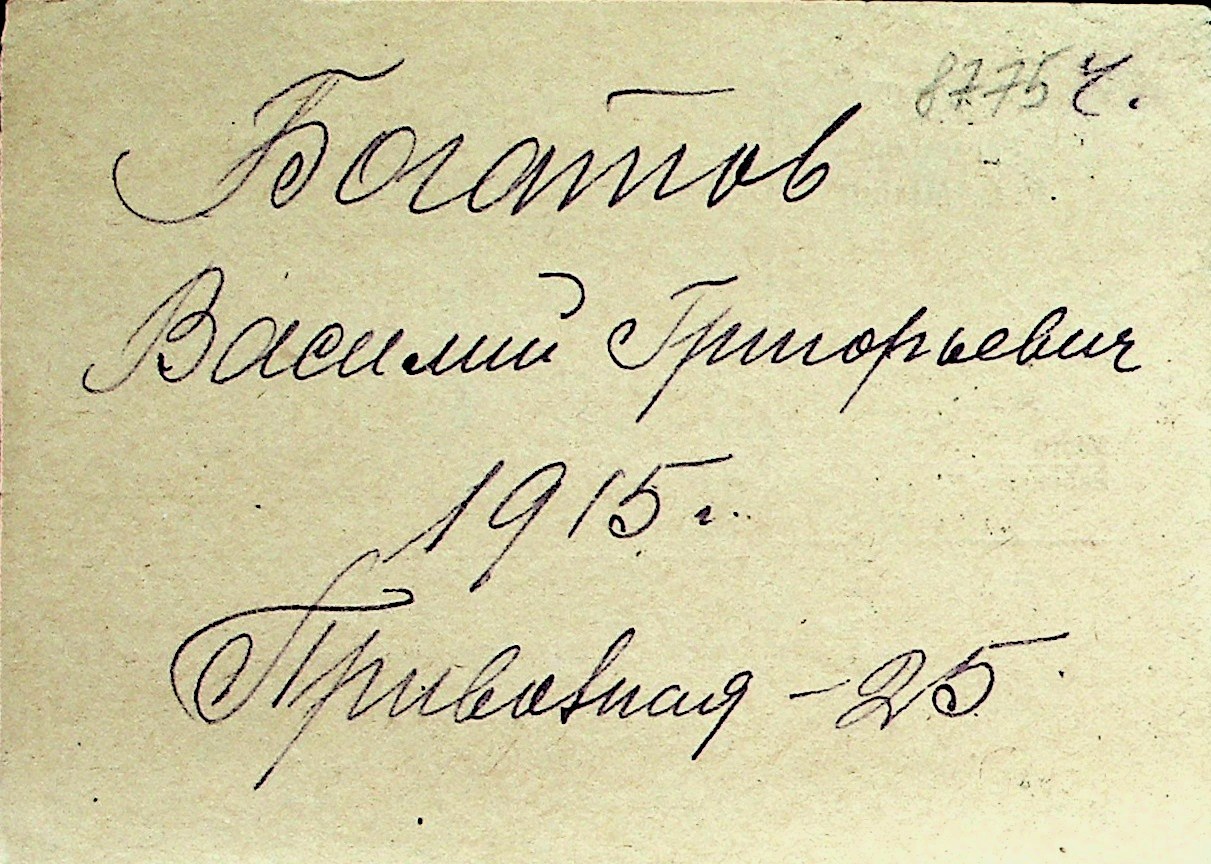 8775 Ч.
Богатов
Василий Григорьевич
1915 г.
Привозная - 25